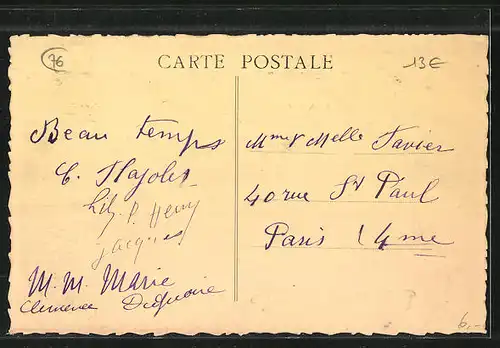 76
CARTE POSTALE
13€
Beau temps
Mme & Melle Favier
E. Hajoles
40 rue St Paul
Lily. P. Henry
Jacques
Paris (4me
M. M. Marie
Clemence
6,-